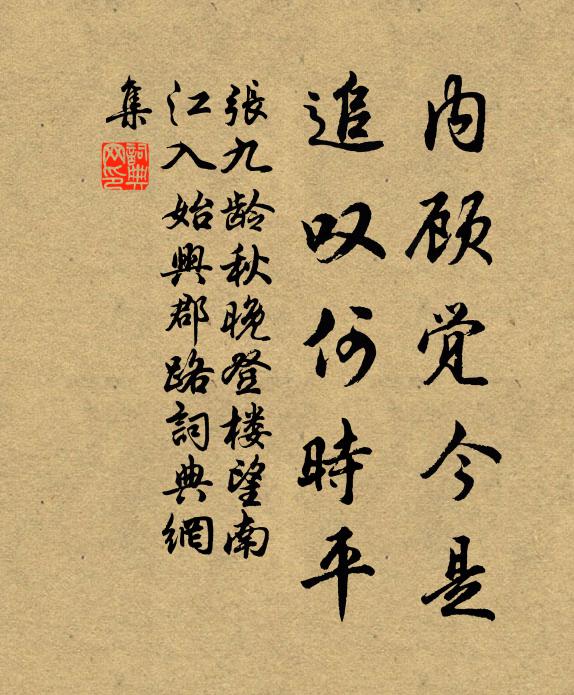 内顾觉今是
追叹何時平
張九龄秋晚登楼望南
江入始興郡路詞典網
集
詞典网印